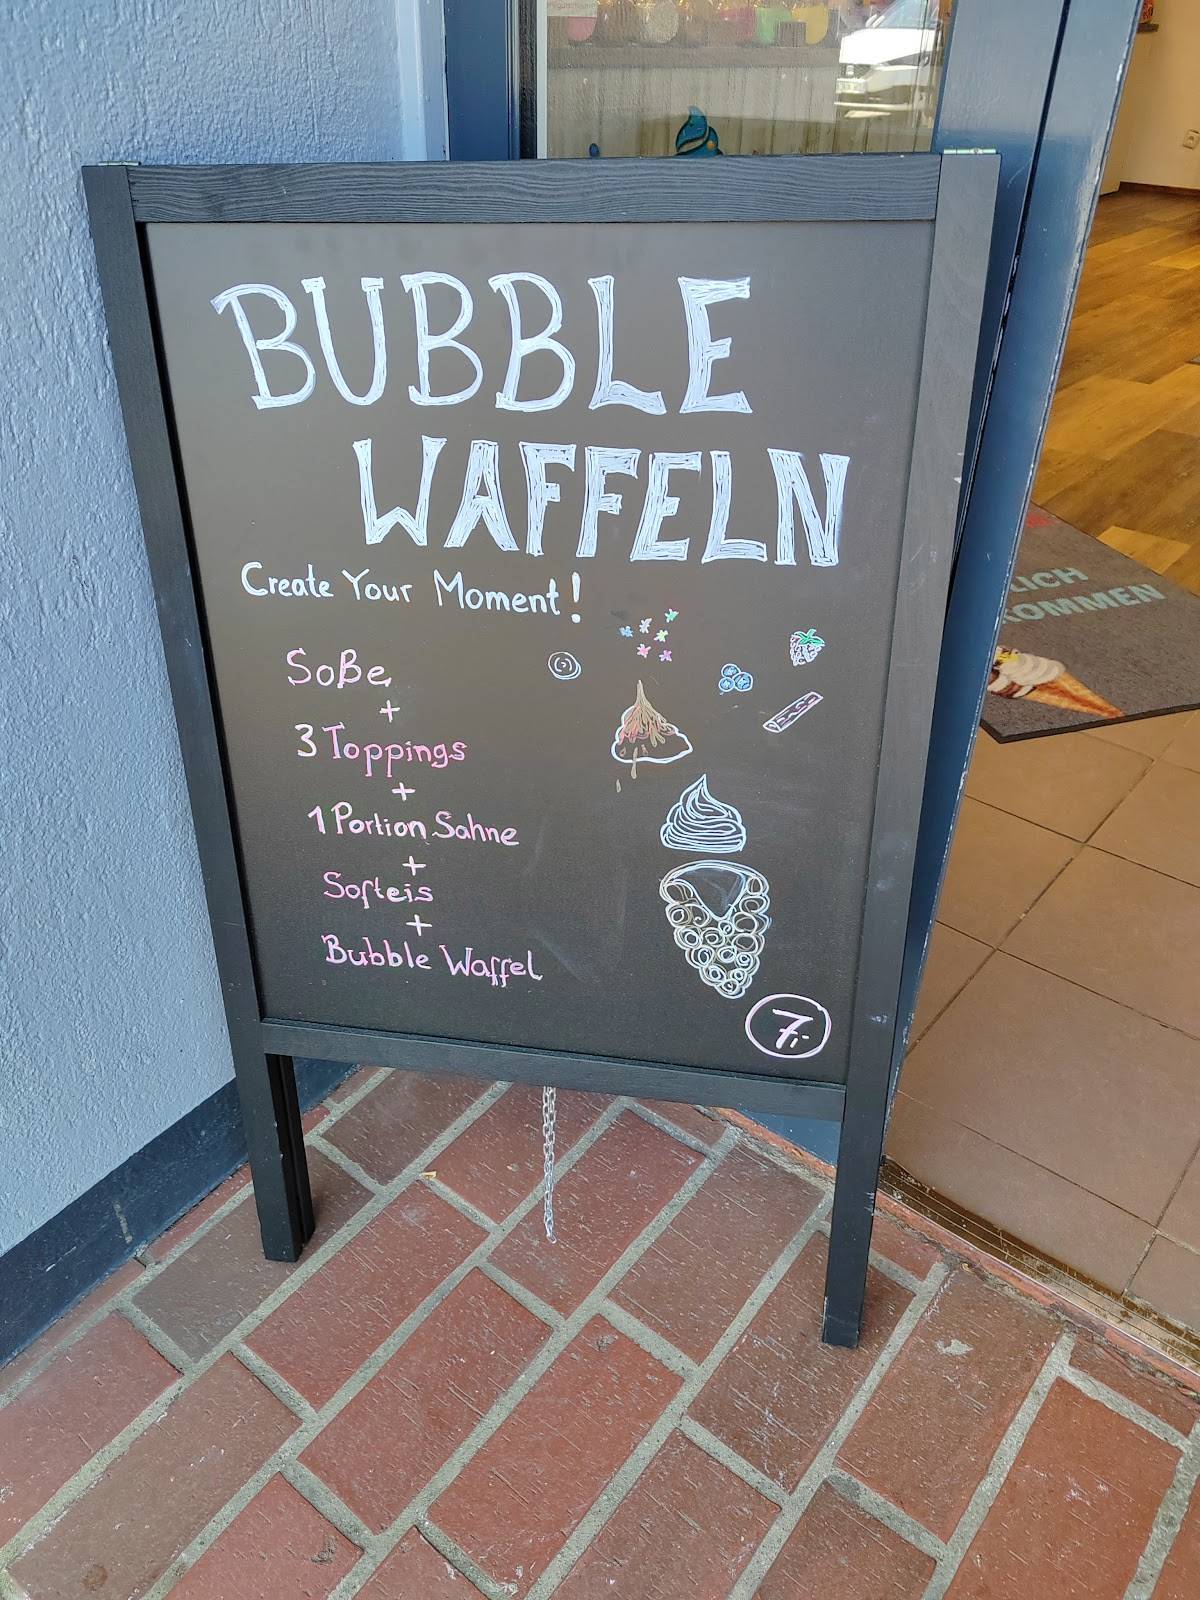 BUBBLE
WAFFELN
Create Your Moment!
Soße
+
3 Toppings
+
1 Portion Sahne
+
Softeis
+
Bubble Waffel
7,-
LICH
KOMMEN